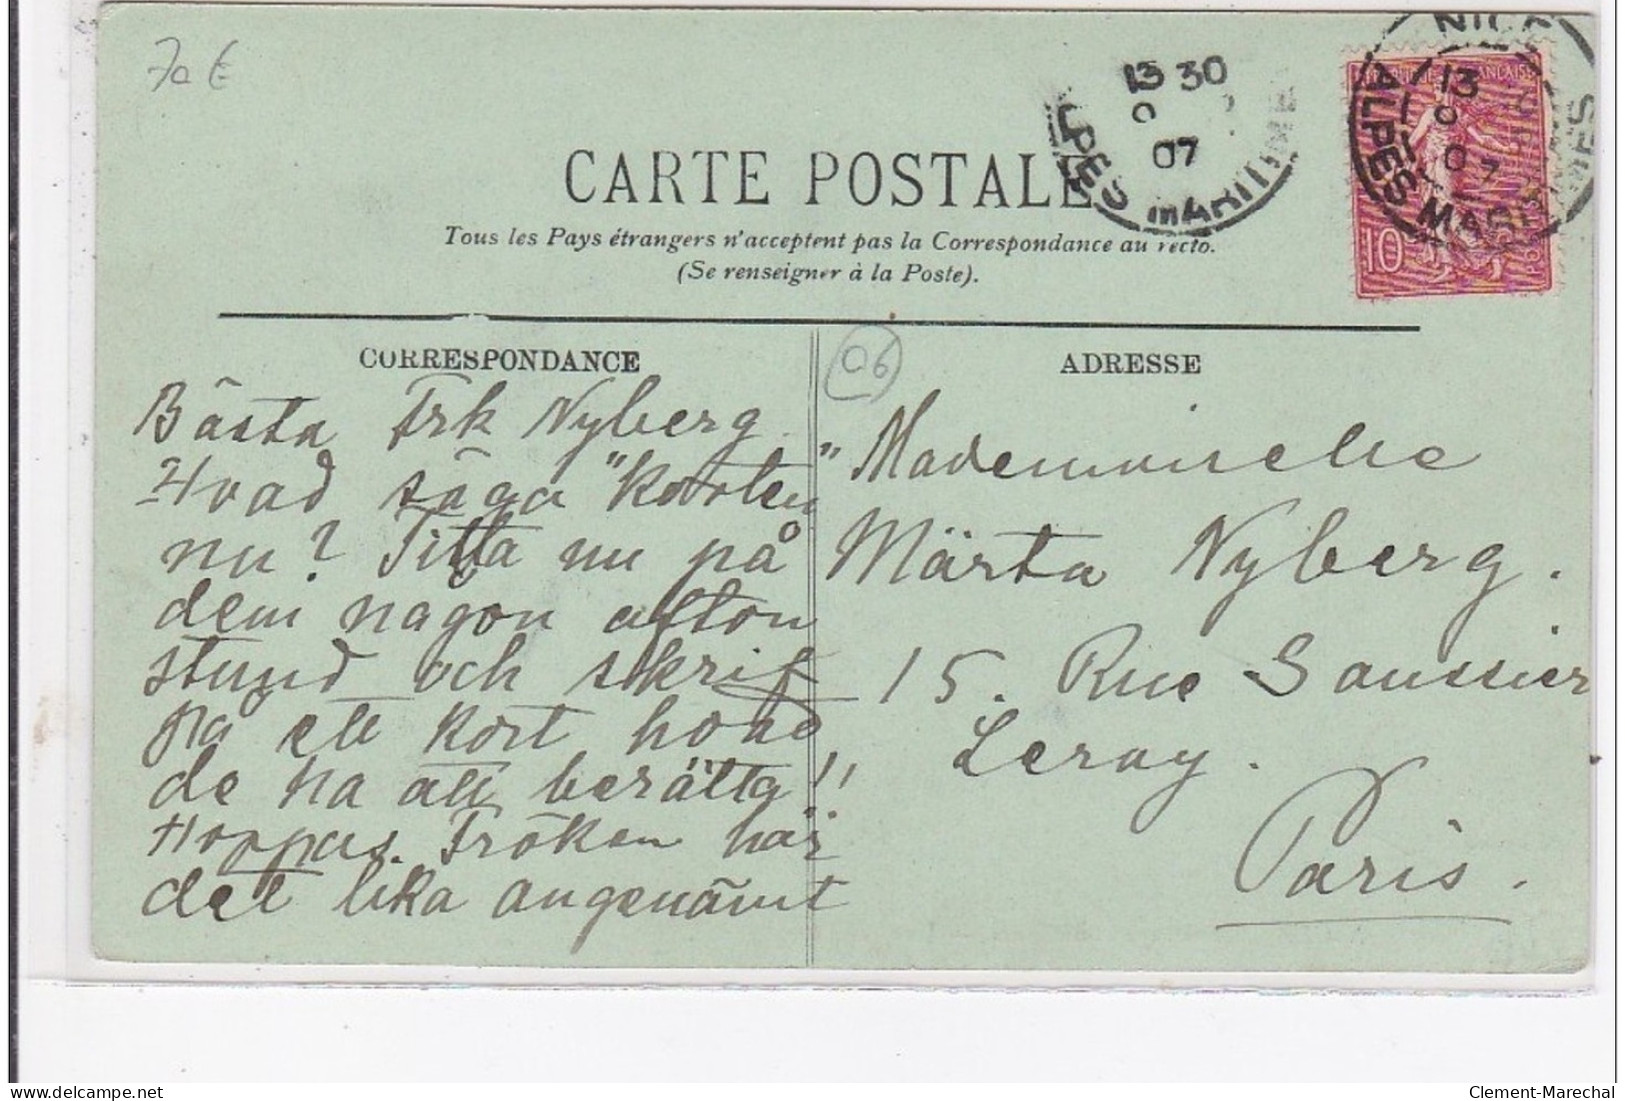 70 €
CARTE POSTALE
Tous les Pays étrangers n'acceptent pas la Correspondance au recto.
(Se renseigner à la Poste).
13 30
07
ALPES MARITIMES
NICE
13
07
ALPES MARITIMES
10
CORRESPONDANCE
06
ADRESSE
Bästa Frk Nyberg
Hvad säga "Korten"
nu? Titta nu på
dem någon afton
stund och skrif
på ett kort hvad
de ha att berätta!!
Hoppas Fröken har
det lika angenämt
Mademoiselle
Märta Nyberg.
15. Rue Saussier
Leroy.
Paris.
Clement-Marechal